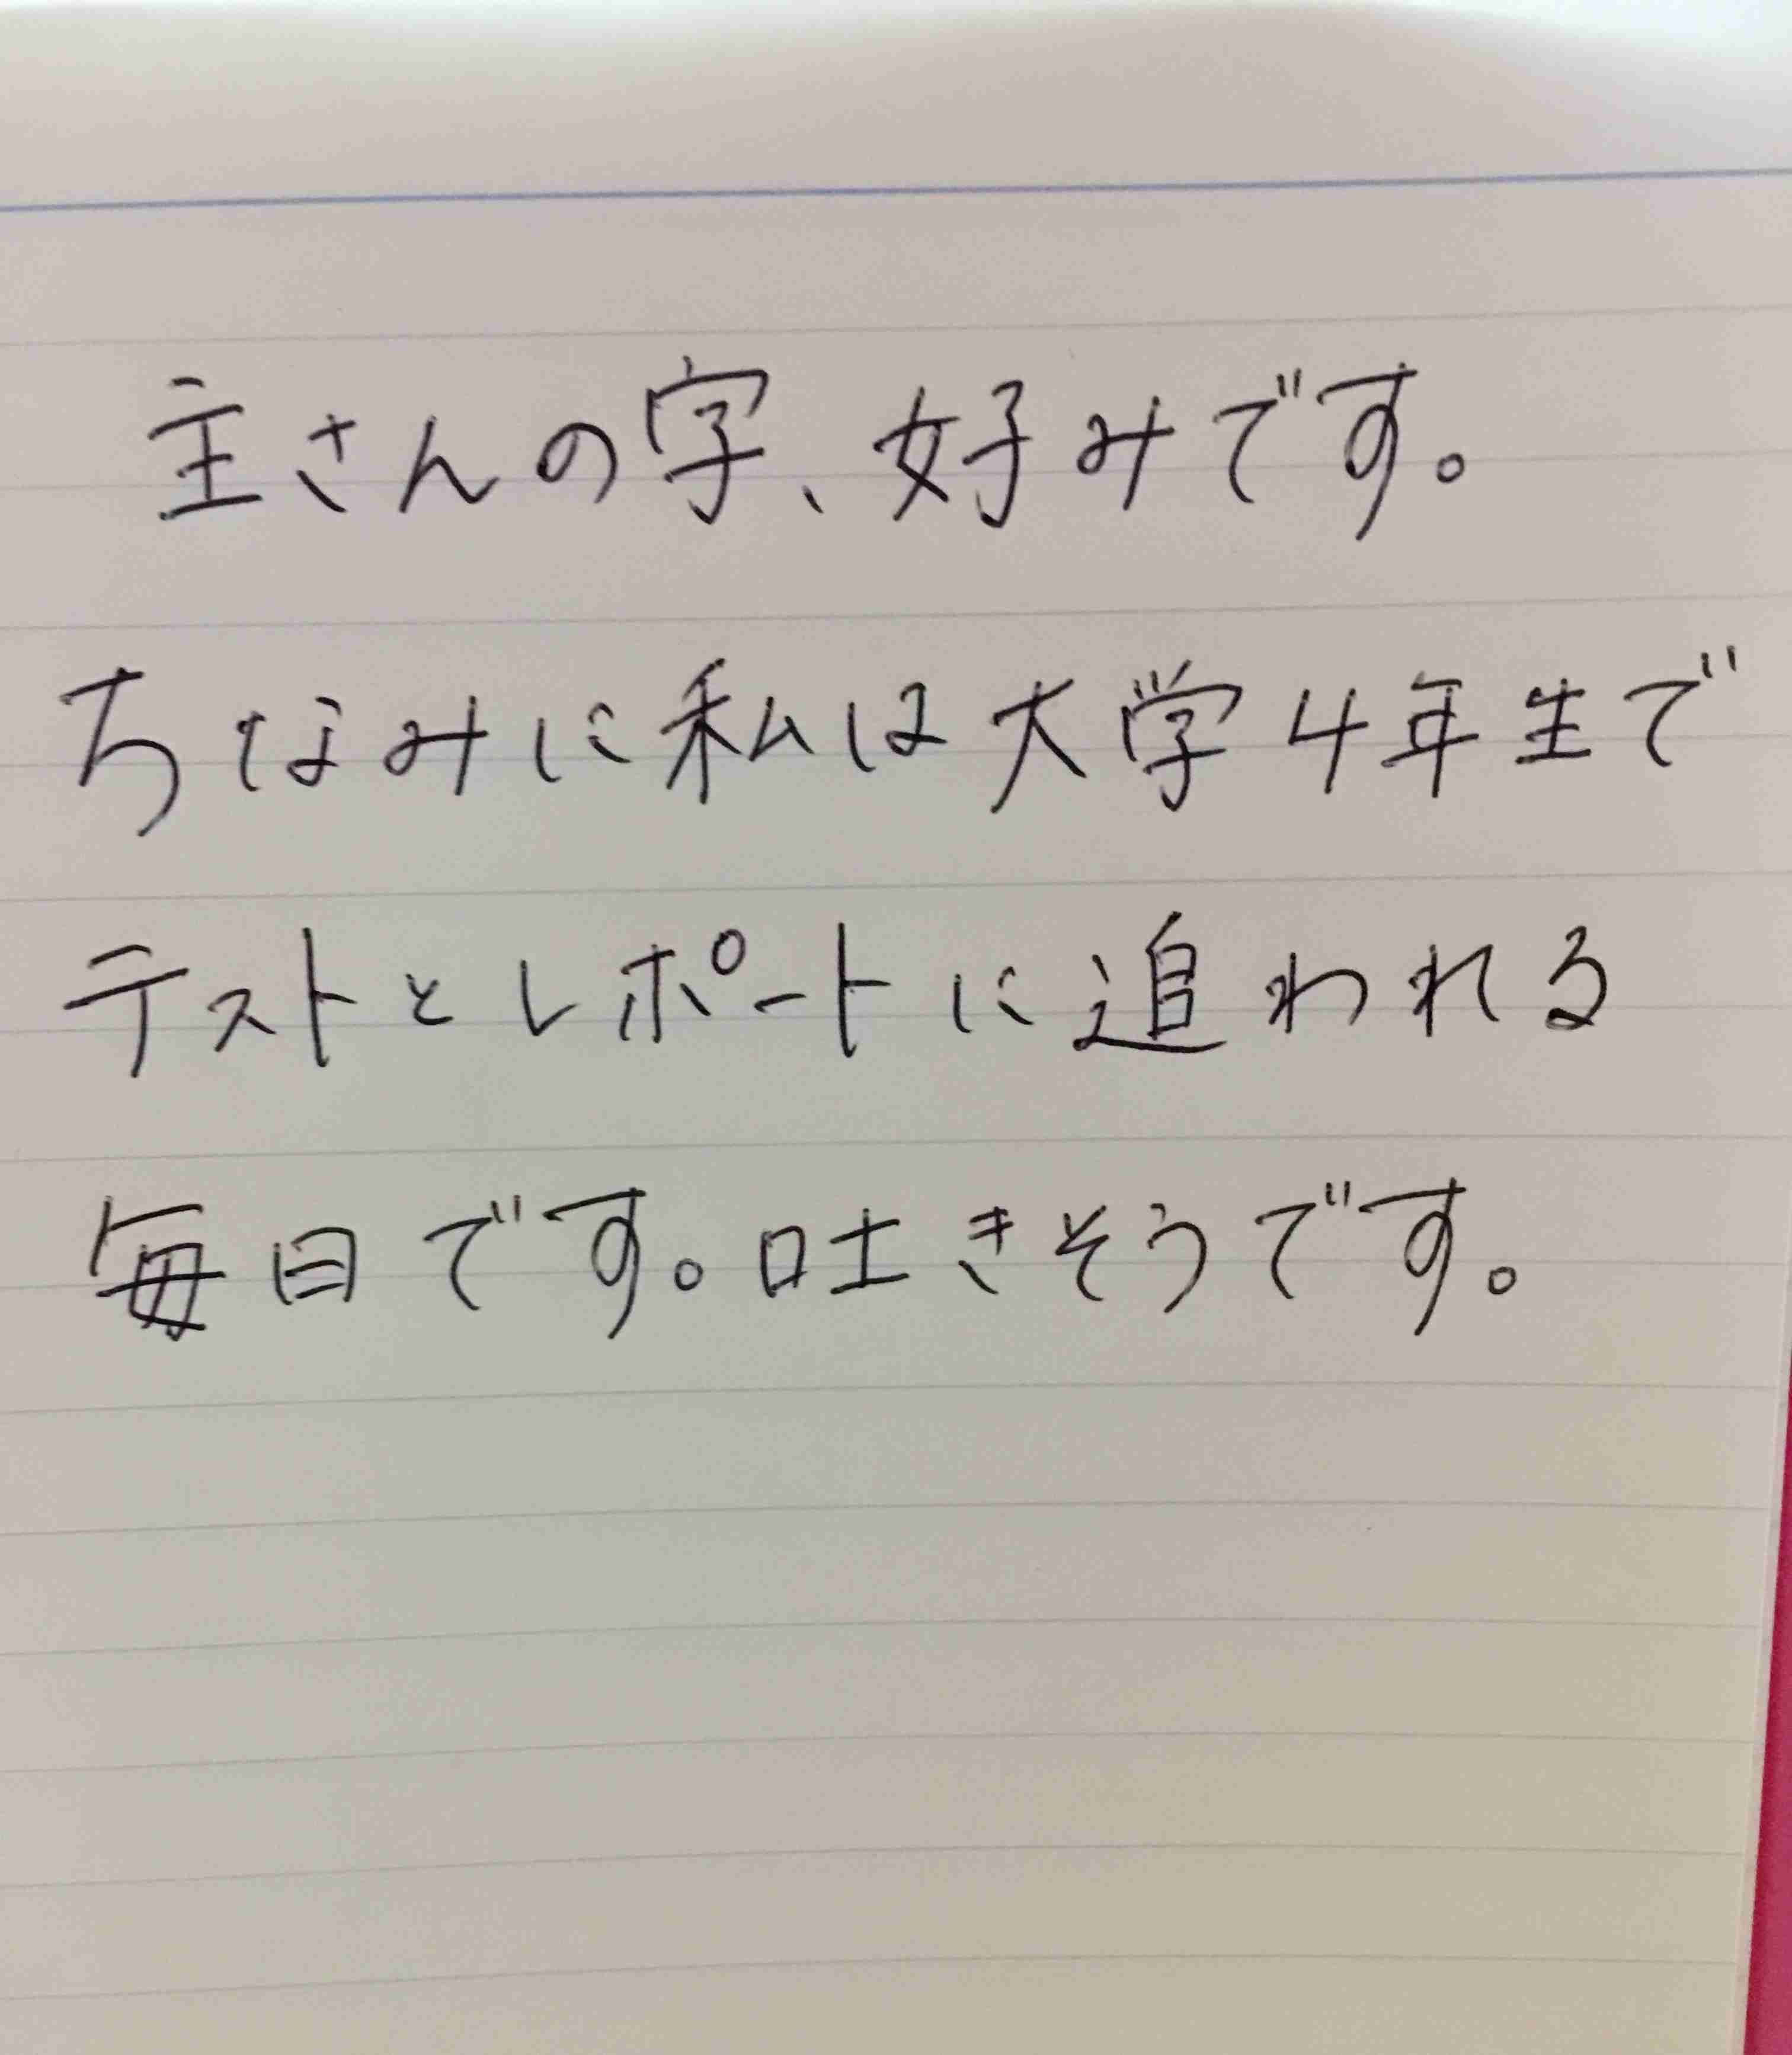 主さんの字、好みです。
ちなみに私は大学4年生で
テストとレポートに追われる
毎日です。吐きそうです。